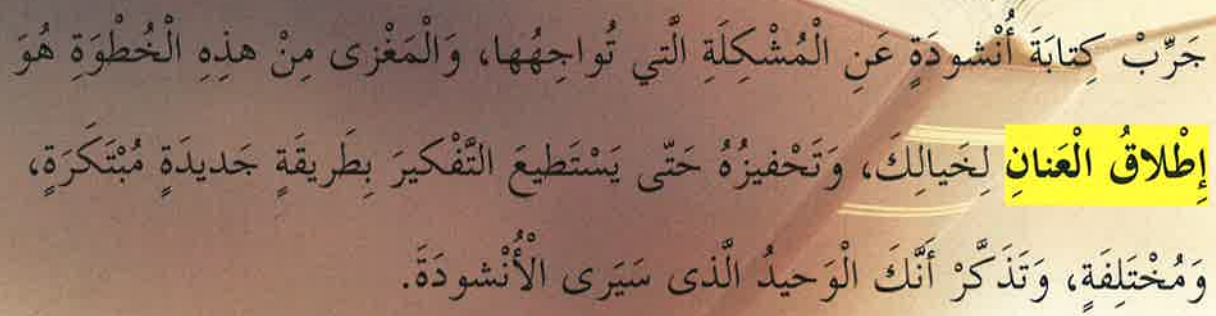 جَرِّبْ كِتابَةَ أُنْشودَةٍ عَنِ الْمُشْكِلَةِ الَّتي تُواجِهُها، وَالْمَغْزى مِنْ هذِهِ الْخُطْوَةِ هُوَ
إِطْلاقُ الْعَنانِ لِخَيالِكَ، وَتَحْفيزُهُ حَتّى يَسْتَطيعَ التَّفْكيرَ بِطَريقَةٍ جَديدَةٍ مُبْتَكَرَةٍ،
وَمُخْتَلِفَةٍ، وَتَذَكَّرْ أَنَّكَ الْوَحيدُ الَّذى سَيَرى الْأُنْشودَةَ.